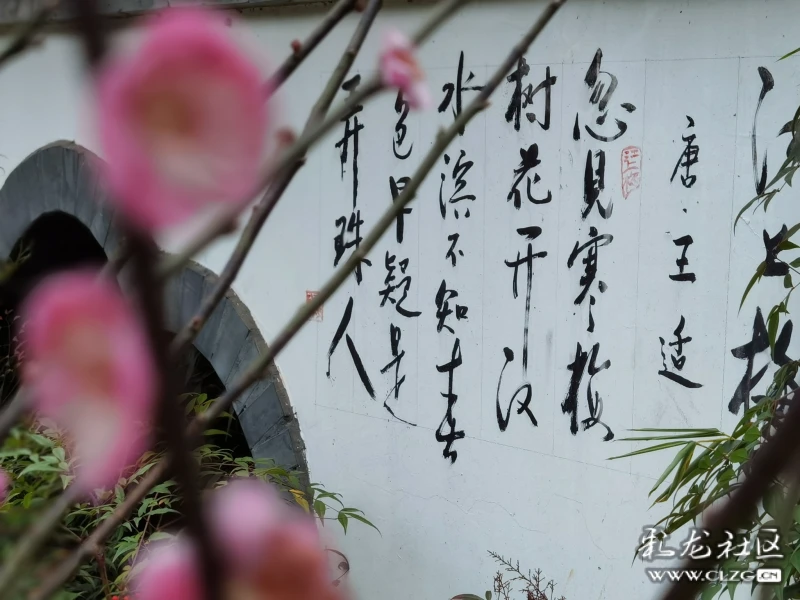 江上梅
唐·王适
忽見寒梅
树花开汉
水滨不知春
色早疑是
弄珠人
彩龙社区
WWW.CLZG.CN